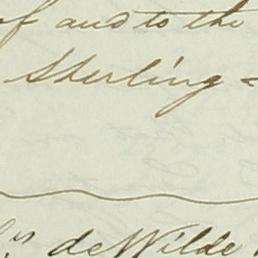 of and to the
Sterling -
de Wilde